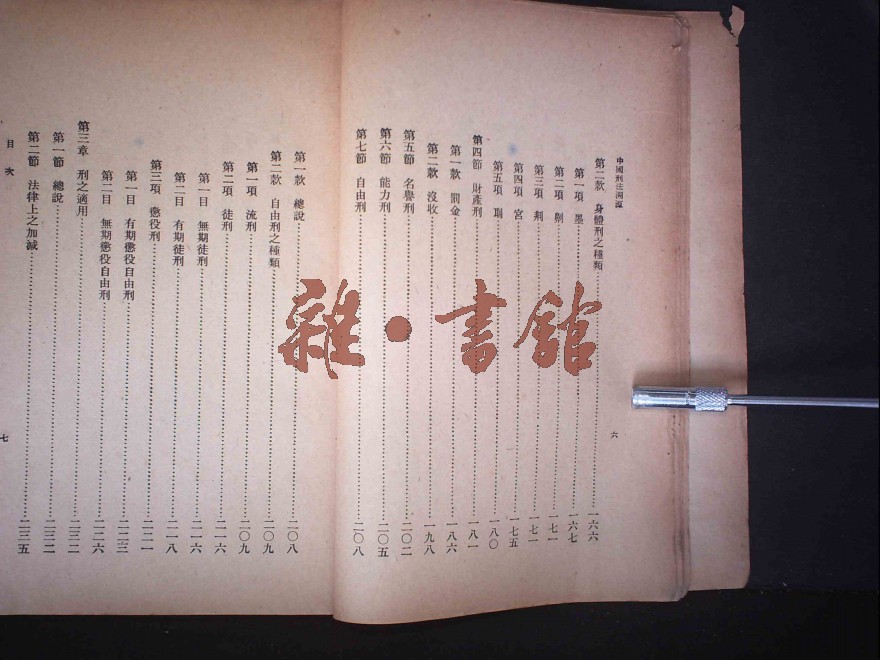 中國刑法溯源
第二款 身體刑之種類 一六六
第一項 墨 一六七
第二項 劓 一七一
第三項 剕 一七一
第四項 宮 一七五
第五項 刵 一八〇
第四節 財產刑 一八一
第一款 罰金 一八六
第二款 沒收 一九八
第五節 名譽刑 二〇二
第六節 能力刑 二〇五
第七節 自由刑 二〇八
六
第一款 總說 二〇八
第二款 自由刑之種類 二〇九
第一項 流刑 二〇九
第二項 徒刑 二一六
第一目 無期徒刑 二一六
第二目 有期徒刑 二一八
第三項 懲役刑 二二一
第一目 有期懲役自由刑 二二三
第二目 無期懲役自由刑 二二六
第三章 刑之適用 二三二
第一節 總說 二三二
第二節 法律上之加減 二三五
目次
七
雜·書館